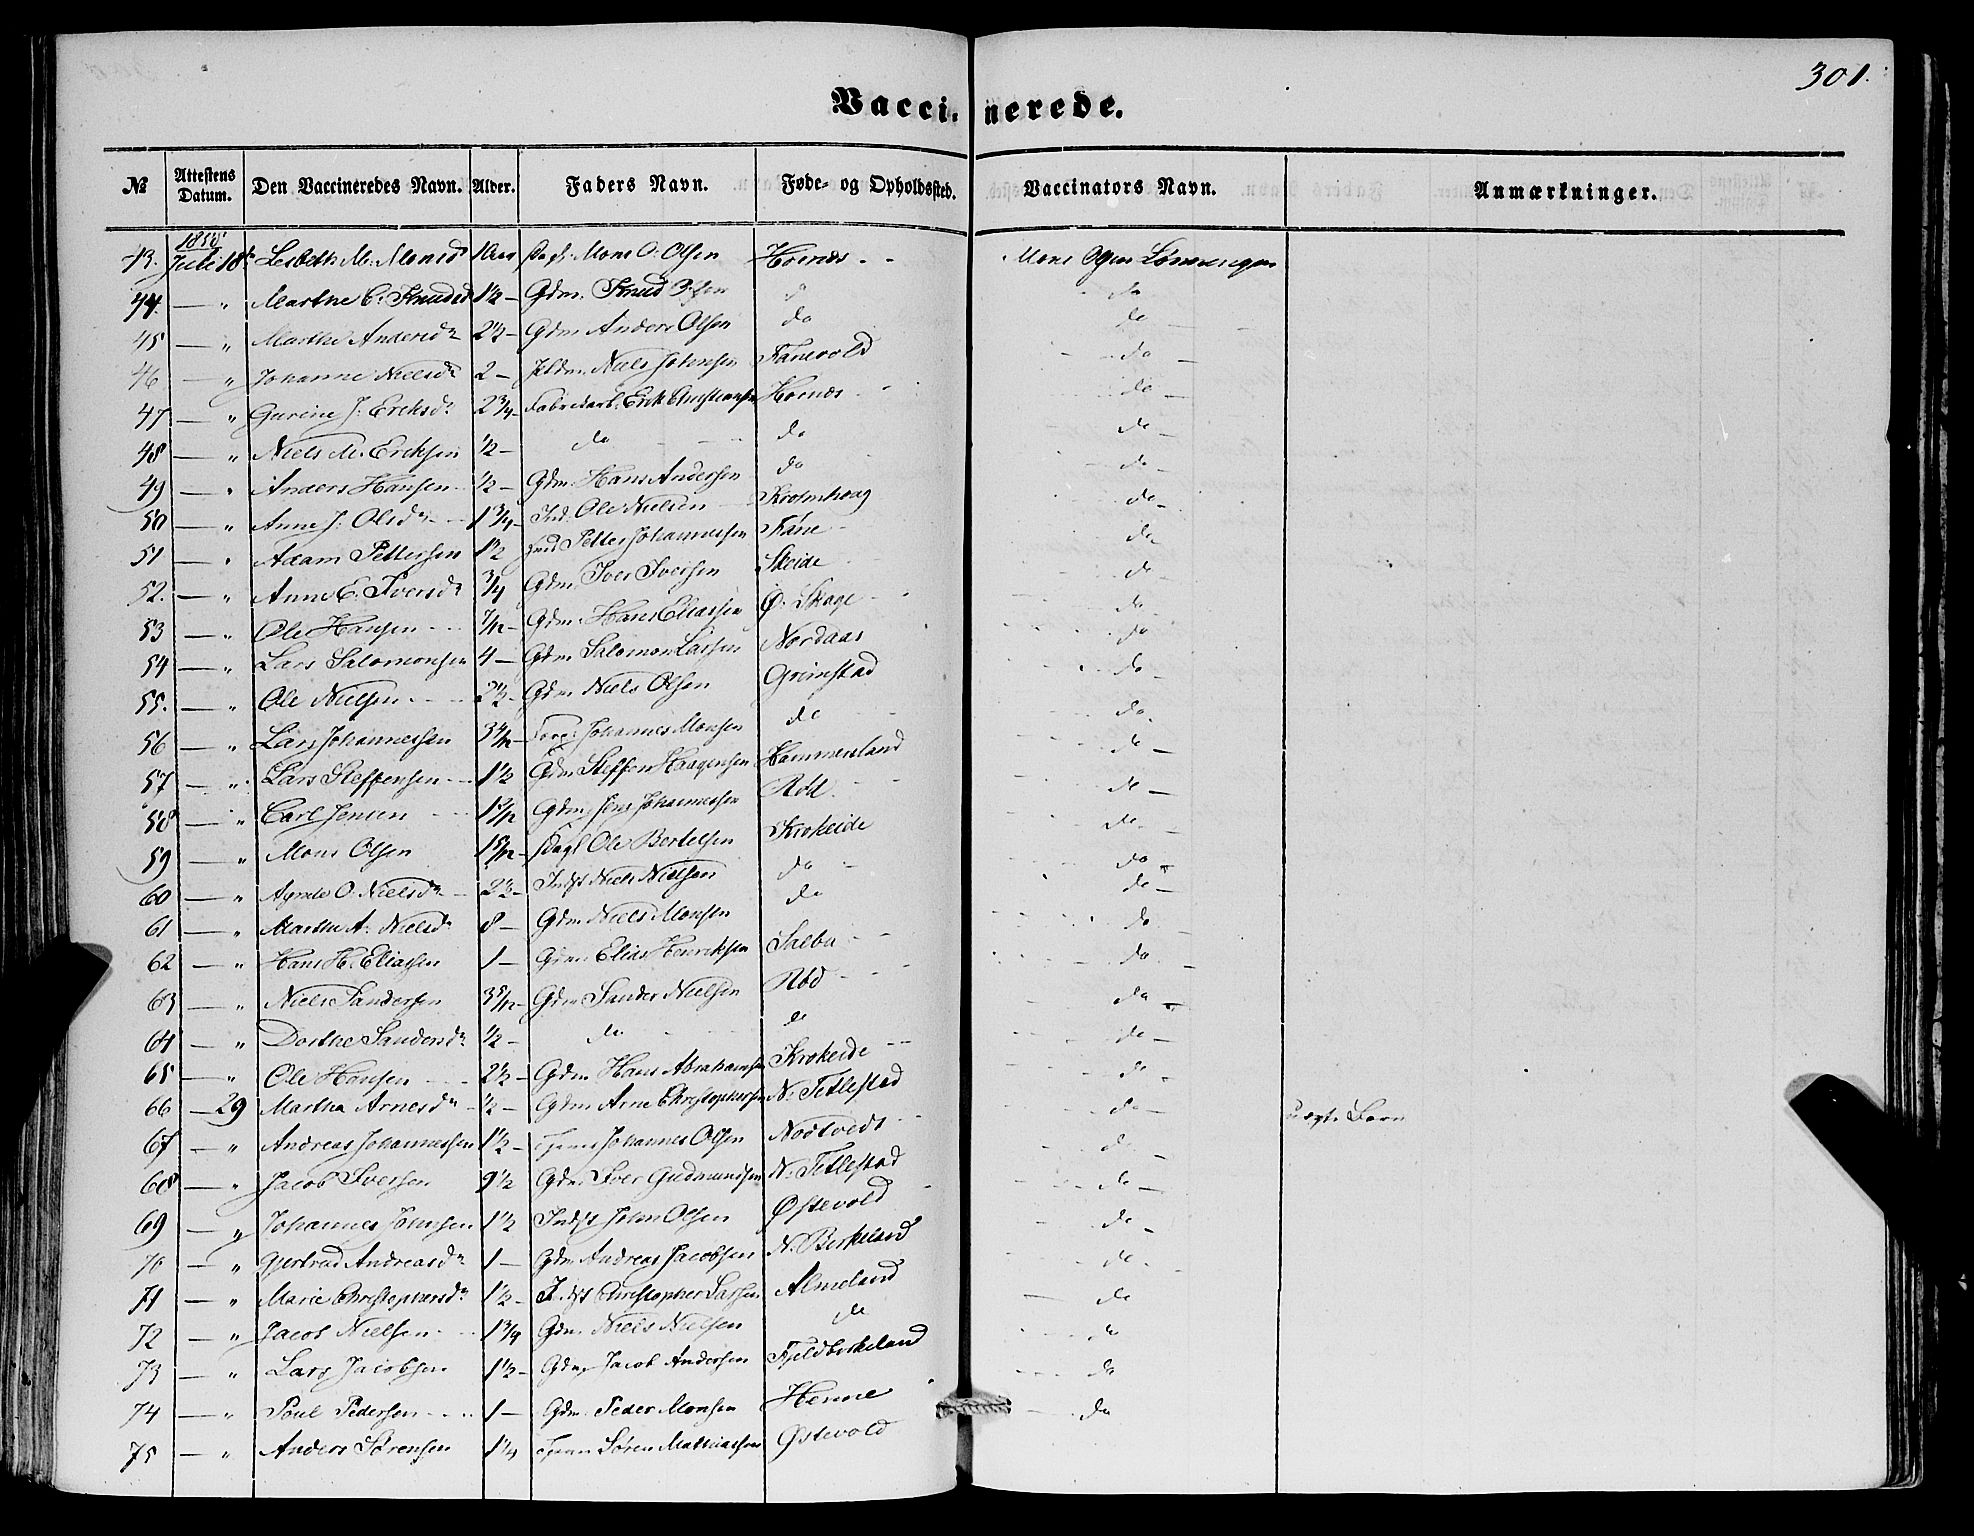 301.
Vaccinerede.
№ Attestens Datum. Den Vaccineredes Navn. Alder. Faders Navn. Føde- og Opholdssted. Vaccinators Navn. Anmærkninger.
1858
43. Juli 18 Lisbeth M. Monsdr 10 Mons O. Olsen Hornæs Mons
44. — " Marthe C. Knudsdr 1½ — Gdm. Knud do do
45 — " Marthe Andersdr 2½ — Gdm Anders Olsen do do
46 — " Johanne Nielsdr 2 — Niels Johnsen Fanevold do —
47 — " Gurine J. Eriksdr 2¾ — Erik Christiansen Hornæs do —
48 — " Niels M. Eriksen ½ — do do do —
49 — " Anders Hansen ½ — Gdm. Hans Andersen do do —
50 — " Anne J. Olsdr 1¾ — Ind. Ole Nielsen do —
51 — " Adam Pettersen 1½ Petter Johannessen Fane do
52. — " Anne E. Iversdr ¾ Gdm. Iver Iversen Skeide do —
53 — " Ole Hansen 7/12 — Gdm. Hans Eliassen Ø. Skage do —
54 — " Lars Salomonsen 4 — Gdm Salomon Larsen Nordaas do
55. — " Ole Nielsen 2½ — Gdm Niels Olsen Grimstad do
56 — " Lars Johannessen 3 4/12 — Johannes Monsen do do
57 — " Lars Steffensen 1½ Gdm Steffen Haagensen Hammersland do —
58 — " Carl Jensen Gdm. Jens Johannessen Rød do —
59 — " Mons Olsen 1 5/12 — Dagl Ole Bertelsen Krokeide do
60 — " O. Nielsdr 2½ — Indst Niels Nielsen do do
61 — " Marthe A. Nielsdr 8 — Gdm Niels Monsen do do —
62 — " Hans H. Eliassen 1 — Gdm Elias Henriksen Salbu do
63 — " Niels Sandersen 3 5/12 — Gdm Sander Nielsen Rød do
64 — " Dorthe Sandersdr ½ — do do do —
65 — " Ole Hansen 2½ — Gdm. Hans Abrahamsen Krokeide do
66 — 29 Martha Arnesdr ½ — Gdm Arne Christophersen N. Titlestad do
67 — " Andreas Johannessen 1½ — Johannes Olsen Nødtvedt do — uægte Barn
68 — " Jacob Iversen 9½ Gdm Iver Gudmundsen N. Titlestad do
69 — " Johannes Johnsen 1½ Indst John Olsen Østevold do —
70 — " Gjertrud Andreasdr 1 — Gdm Andreas Jacobsen N. Birkeland do
71 — " Marie Christophersdr 1½ — Indst Christopher Larsen Almeland do
72 — " Jacob Nielsen 1¾ Gdm. Niels Nielsen do do
73 — " Lars Jacobsen 1½ — Gdm Jacob Andersen Fjeldbirkeland do
74 — " Poul Pedersen 1 — Gdm. Peder Monsen Henne do
75 — " Anders Sørensen 1¼ Søren Mathiassen Østevold do